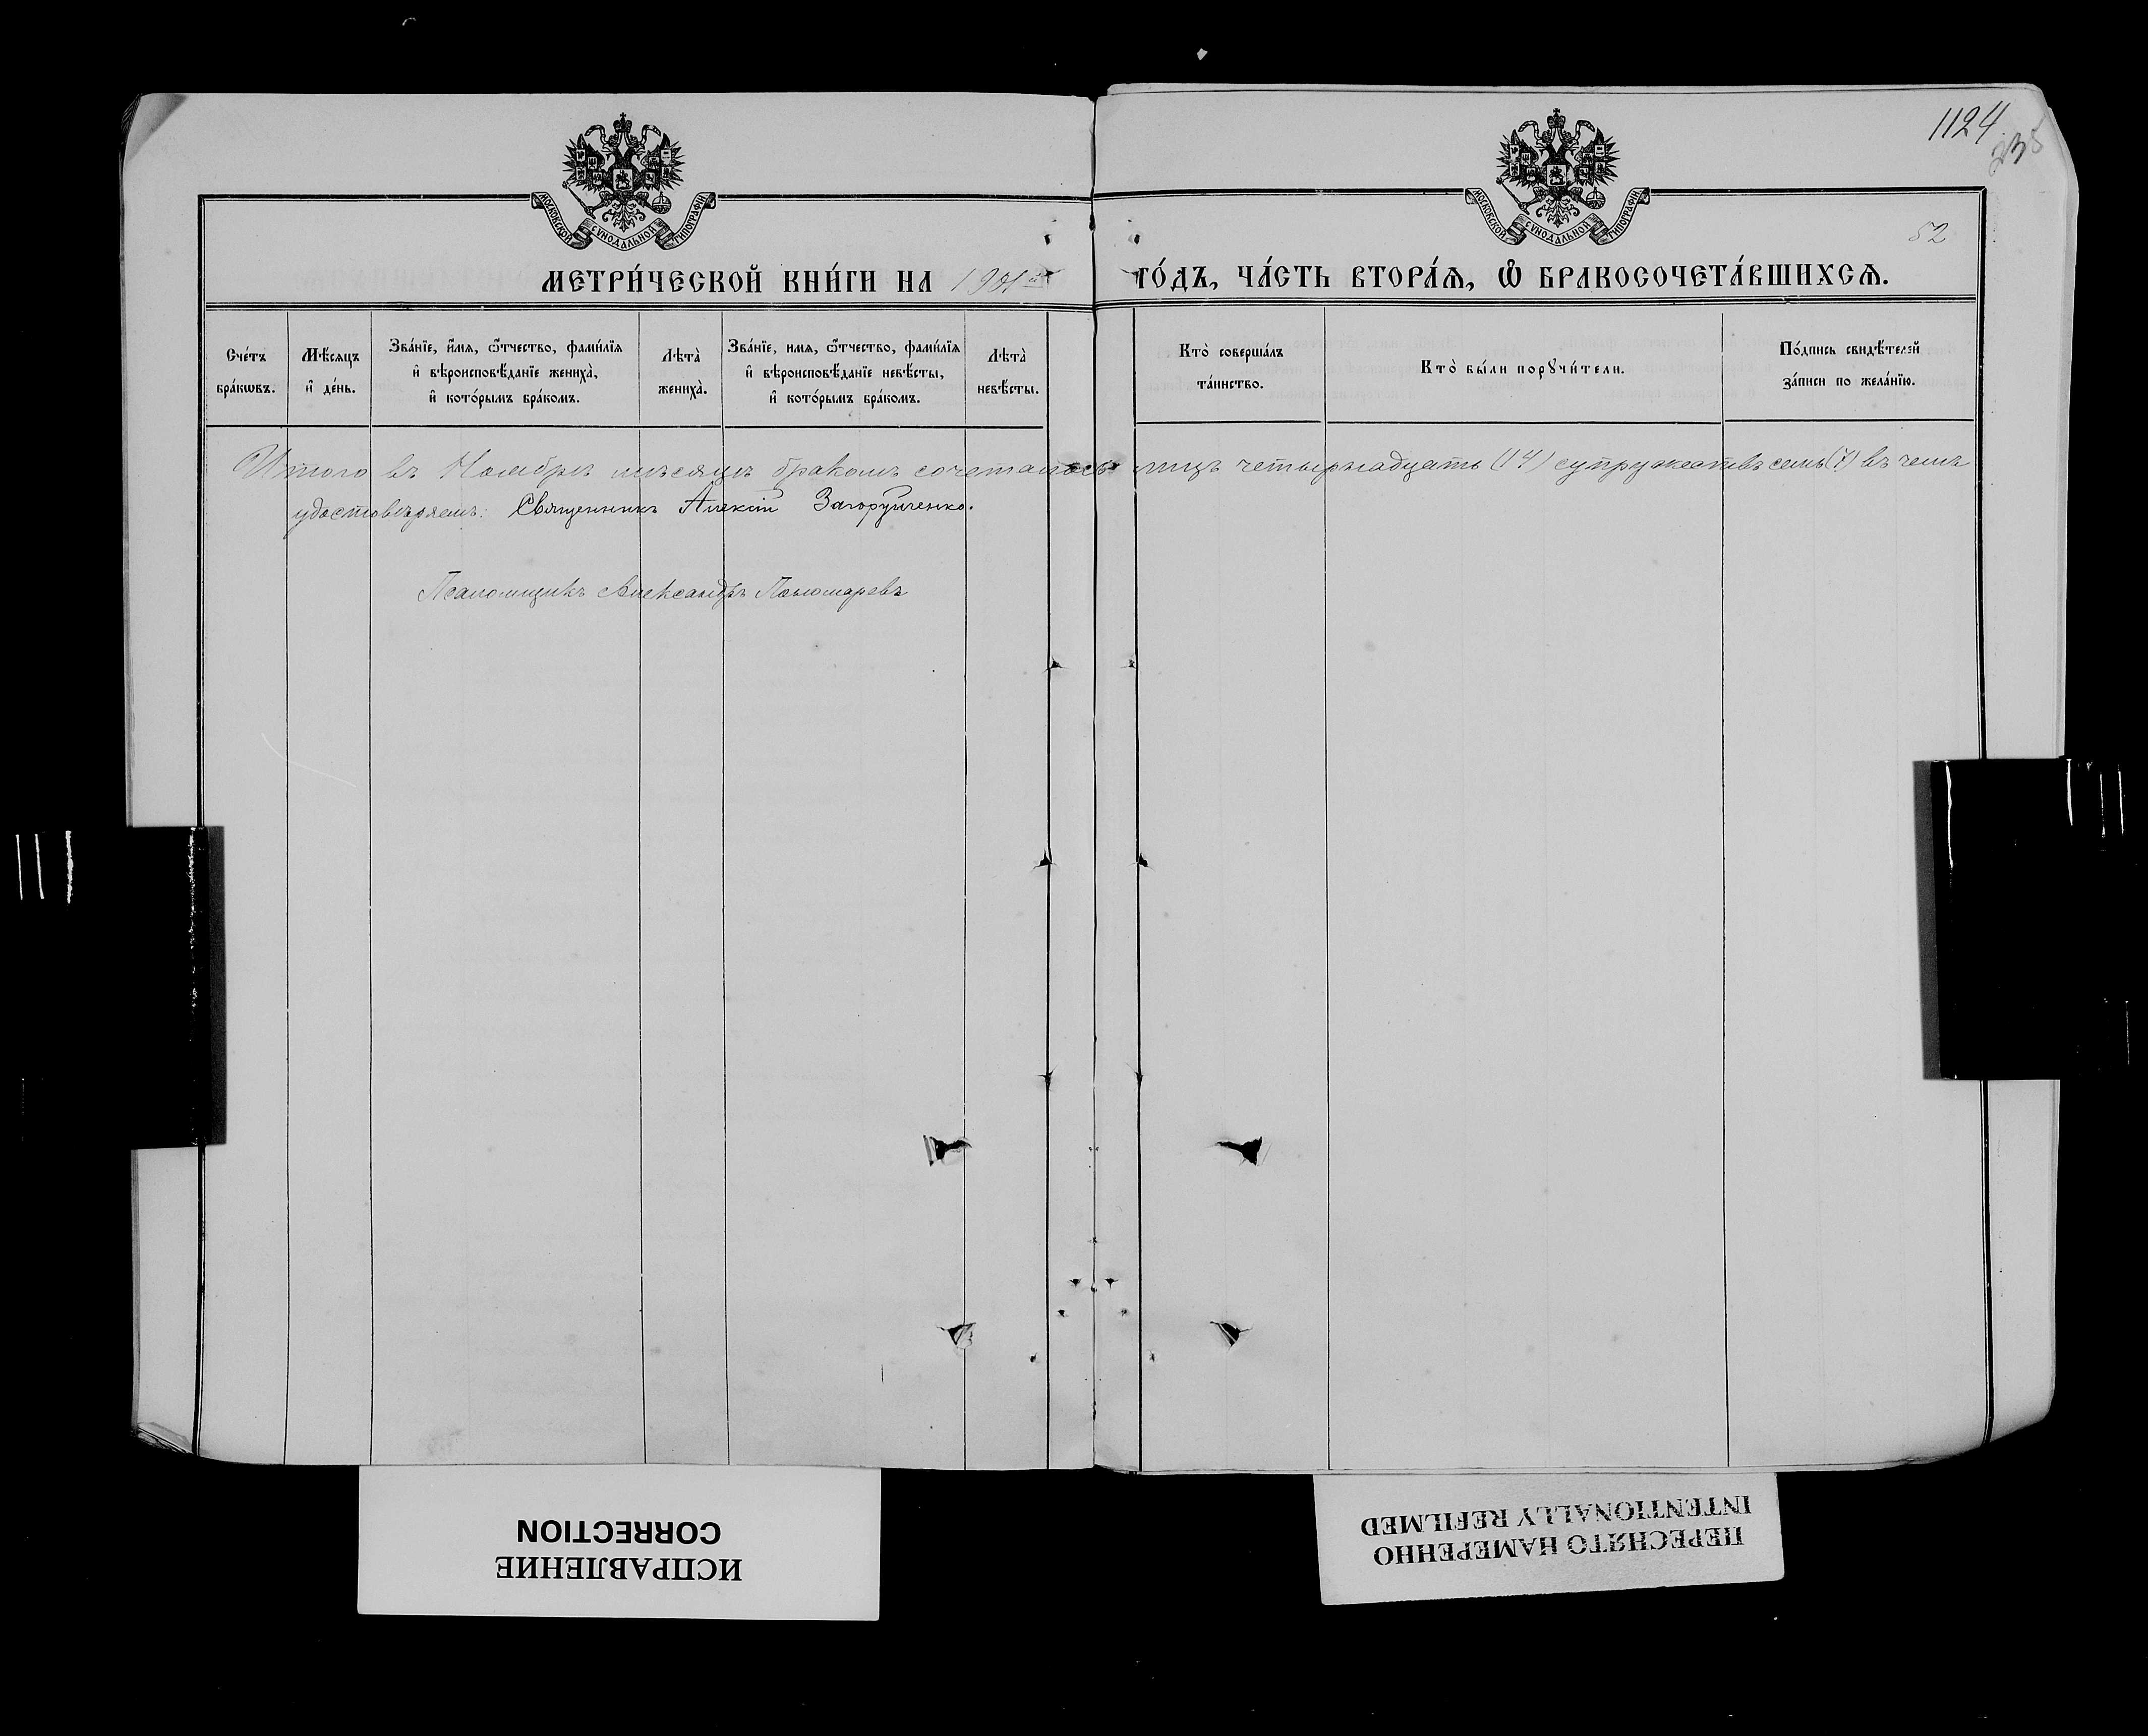 1124
238
52
МОСКОВСКОЙ СУНОДАЛЬНОЙ ТИПОГРАФІИ.
МОСКОВСКОЙ СУНОДАЛЬНОЙ ТИПОГРАФІИ.
МЕТРИ́ЧЕСКОЙ КНИ́ГИ НА 1901 ГО́ДЪ, ЧА́СТЬ ВТОРА́Я, Ѽ БРАКОСОЧЕТА́ВШИХСЯ.
Сче́тъ бра́кωвъ.
Мѣ́сяцъ и҆ де́нь.
Зва́нїе, и҆́мя, ѻ҆́тчество, фами́лїя и҆ вѣроисповѣ́данїе жениха̀, и҆ кото́рымъ бра́комъ.
Лѣта̀ жениха̀.
Зва́нїе, имя, ѻ҆́тчество, фами́лїя и҆ вѣроисповѣ́данїе невѣ́сты, и҆ кото́рымъ бра́комъ.
Лѣта̀ невѣ́сты.
Кто̀ соверша́лъ та́инство.
Кто̀ бы́ли порꙋчи́тели.
По́дпись свидѣ́телей за́писи по жела́нїю.
Итого въ Ноябрѣ мѣсяцѣ бракомъ сочеталось лицъ четырнадцать (14) супружествъ семь (7) въ чемъ
удостовѣряемъ: Священникъ Алексій Загоруйченко.
Псаломщикъ Александръ Пономаревъ
ИСПРАВЛЕНИЕ
CORRECTION
ПЕРЕСНЯТО НАМЕРЕННО
INTENTIONALLY REFILMED